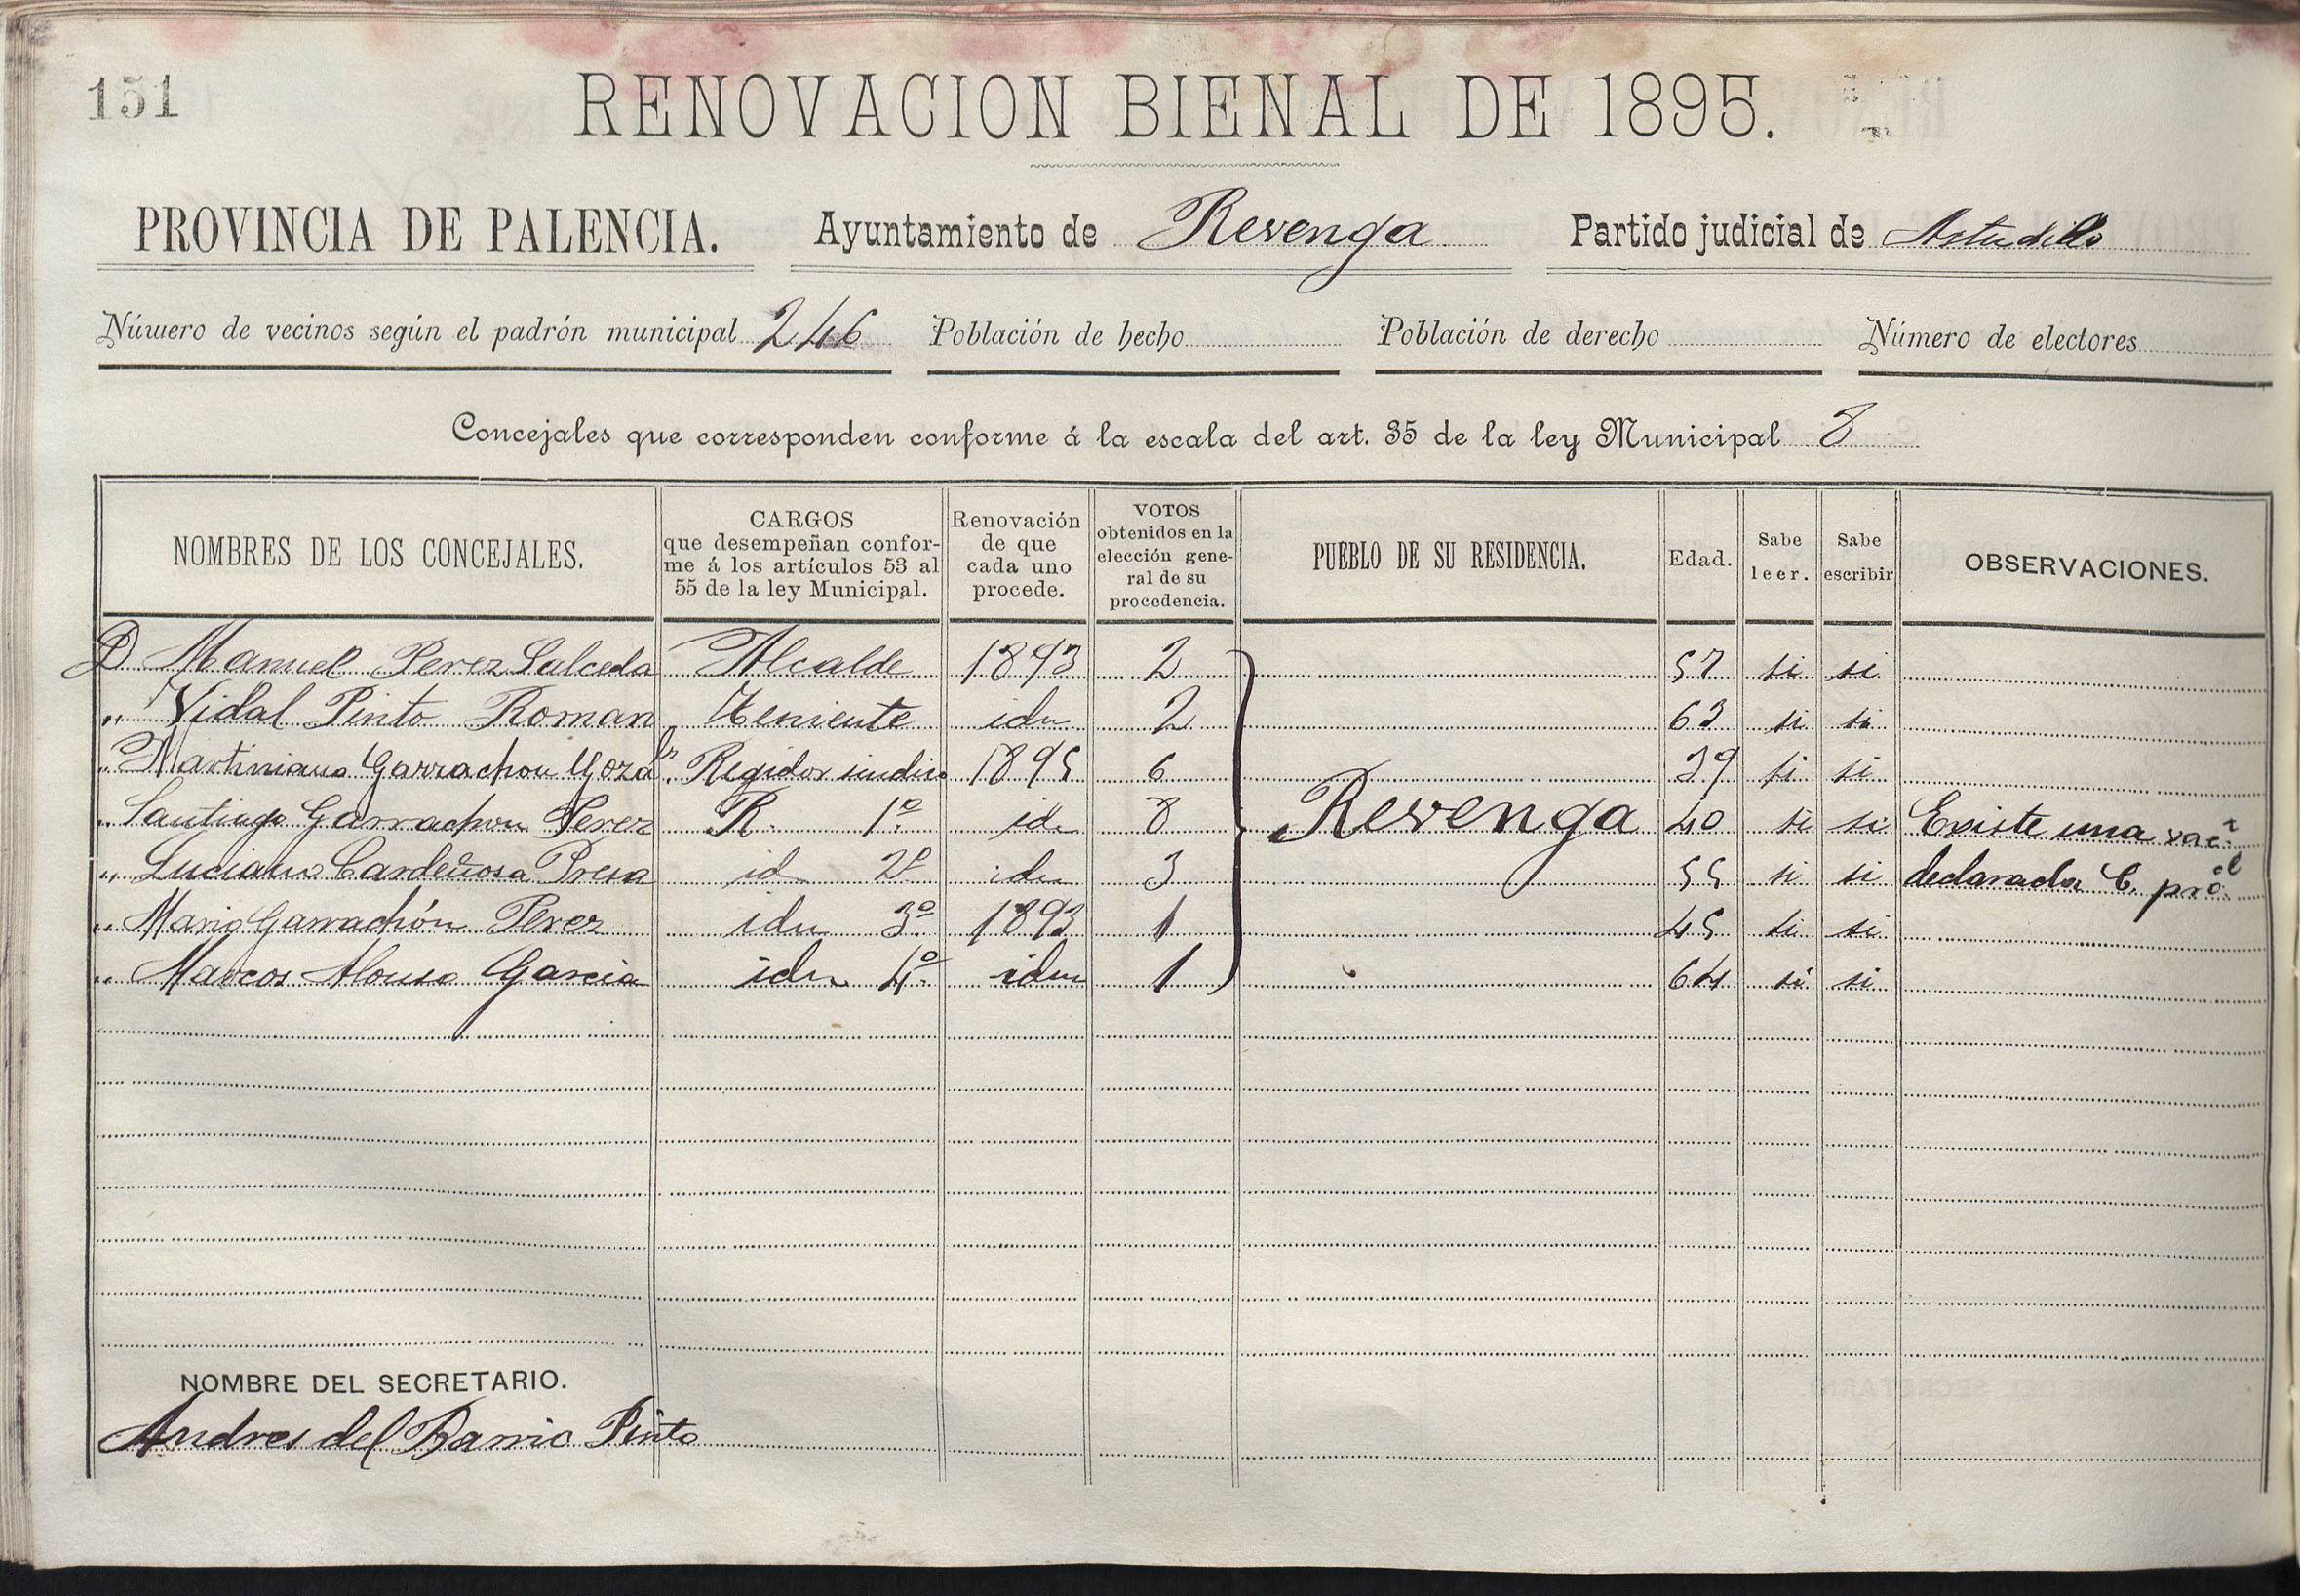 151
RENOVACION BIENAL DE 1895.
PROVINCIA DE PALENCIA. Ayuntamiento de Revenga Partido judicial de Astudillo
Número de vecinos según el padrón municipal 246 Población de hecho Población de derecho Número de electores
Concejales que corresponden conforme á la escala del art. 35 de la ley Municipal 8
NOMBRES DE LOS CONCEJALES.
CARGOS
que desempeñan confor-
me á los artículos 53 al
55 de la ley Municipal.
Renovación
de que
cada uno
procede.
VOTOS
obtenidos en la
elección gene-
ral de su
procedencia.
PUEBLO DE SU RESIDENCIA.
Edad.
Sabe
leer.
Sabe
escribir
OBSERVACIONES.
D Manuel Perez Salceda Alcalde 1893 2 57 si si
„ Vidal Pinto Roman Teniente idm 2 63 si si
„ Martiniano Garrachon Regidor sindico 1895 6 39 si si
„ Santiago Garrachon Perez R. 1º id 8 Revenga 40 si si Existe una vacte
„ Luciano Cardeñosa Presa id 2º idm 3 55 si si declarada C. proel
„ Mario Garrachón Perez idm 3º 1893 1 45 si si
„ Marcos Alonso Garcia idm 4º idm 1 64 si si
NOMBRE DEL SECRETARIO.
Andres del Barrio Pinto